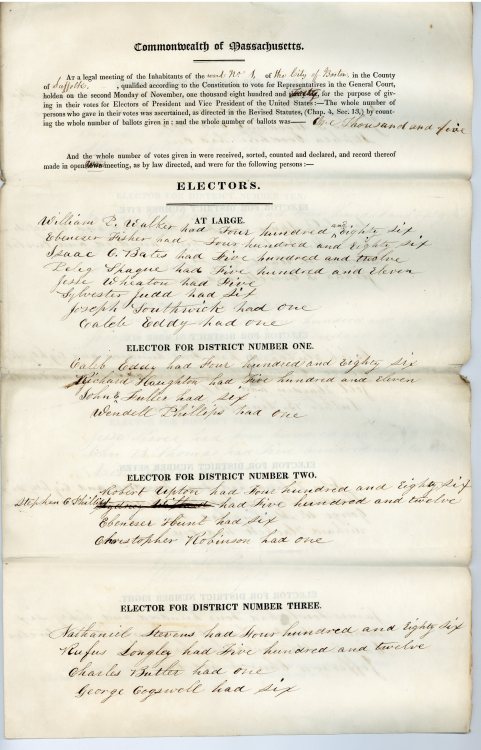 Commonwealth of Massachusetts.
At a legal meeting of the Inhabitants of the ward No 1, of the City of Boston, in the County
of Suffolk, qualified according to the Constitution to vote for Representatives in the General Court,
holden on the second Monday of November, one thousand eight hundred and forty, for the purpose of giv-
ing in their votes for Electors of President and Vice President of the United States:—The whole number of
persons who gave in their votes was ascertained, as directed in the Revised Statutes, (Chap. 4, Sec. 13,) by count-
ing the whole number of ballots given in; and the whole number of ballots was— One Thousand and five
And the whole number of votes given in were received, sorted, counted and declared, and record thereof
made in open meeting, as by law directed, and were for the following persons:—
ELECTORS.
AT LARGE.
William P. Walker had Four hundred and Eighty Six
Ebenezer Fisher had Four hundred and Eighty Six
Isaac C. Bates had Five hundred and twelve
Peleg Sprague had Five hundred and Eleven
Jesse Wheaton had Five
Sylvester Judd had Six
Joseph Southwick had one
Caleb Eddy had one
ELECTOR FOR DISTRICT NUMBER ONE.
Caleb Eddy had Four hundred and Eighty Six
Richard Haughton had Five hundred and eleven
John E Fuller had Six
Wendell Phillips had one
ELECTOR FOR DISTRICT NUMBER TWO.
Robert Upton had Four hundred and Eighty Six
Stephen C Phillips had Five hundred and twelve
Ebenezer Hunt had Six
Christopher Robinson had one
ELECTOR FOR DISTRICT NUMBER THREE.
Nathaniel Stevens had Four hundred and Eighty Six
Rufus Longley had Five hundred and twelve
Charles Butler had one
George Cogswell had Six